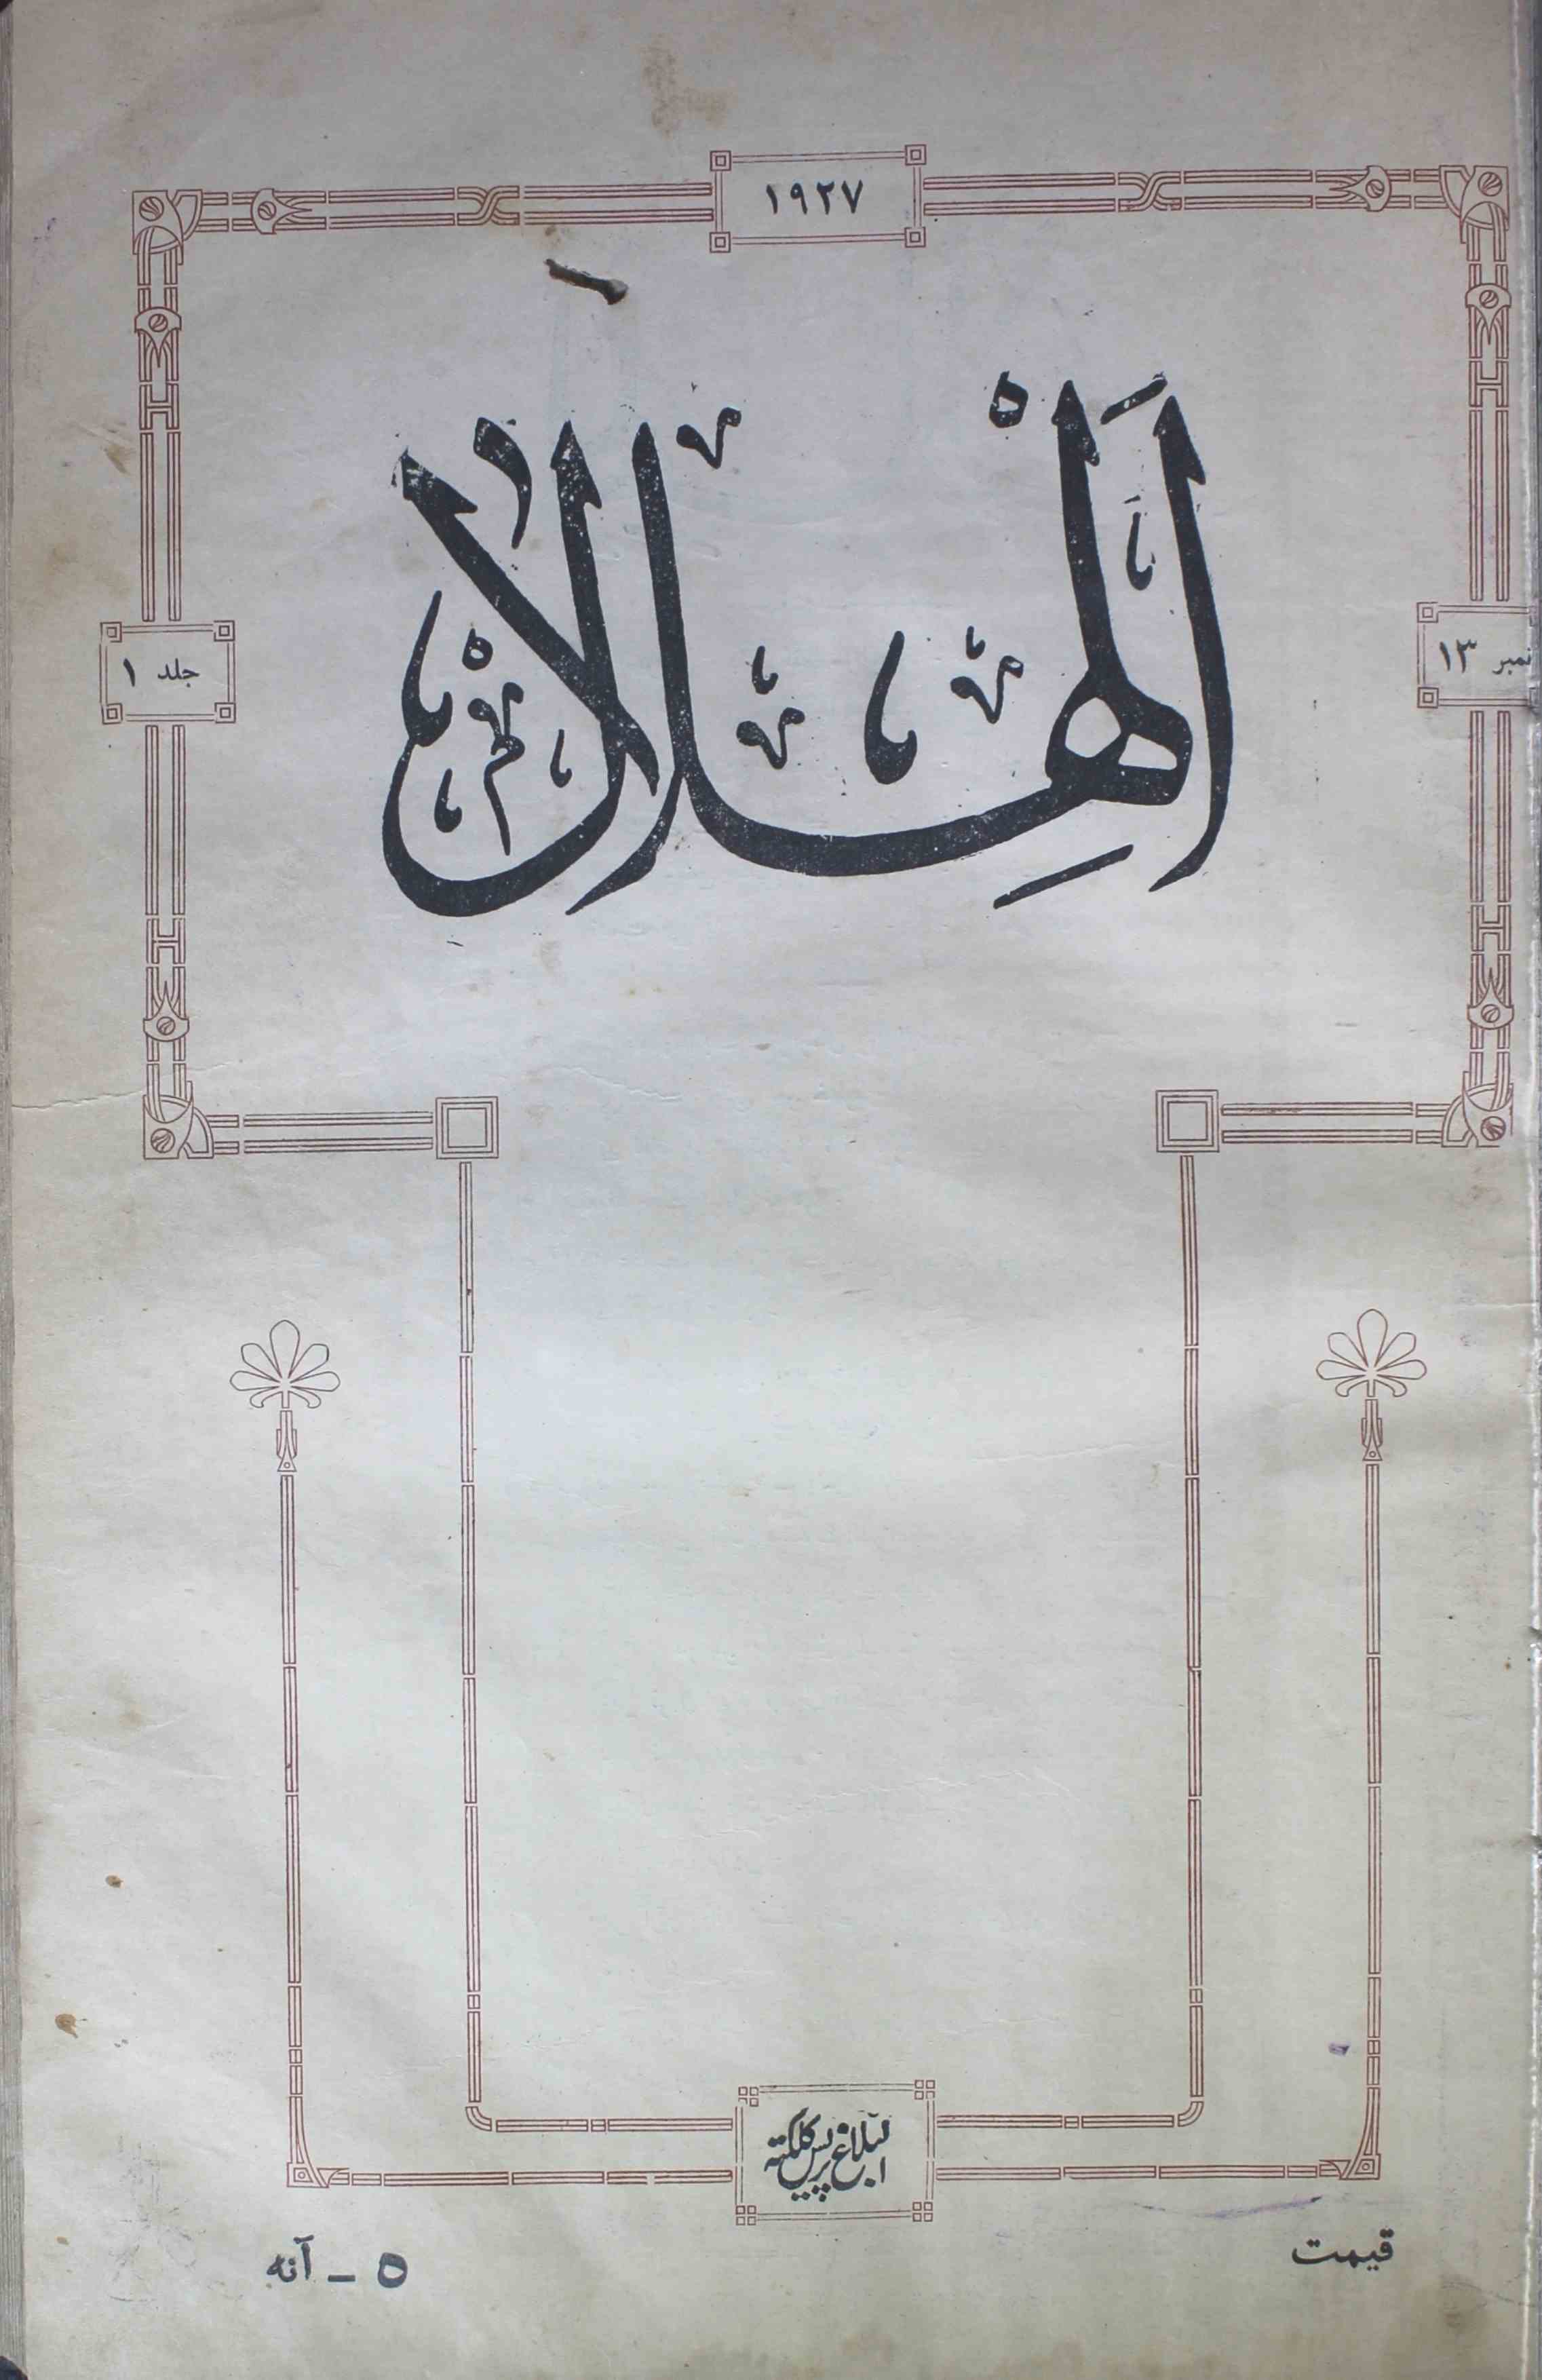 ۱۹۲۷
الهلال
نمبر ۱۳
جلد ۱
البلاغ پریس کلکته
قیمت
۵ - آنه